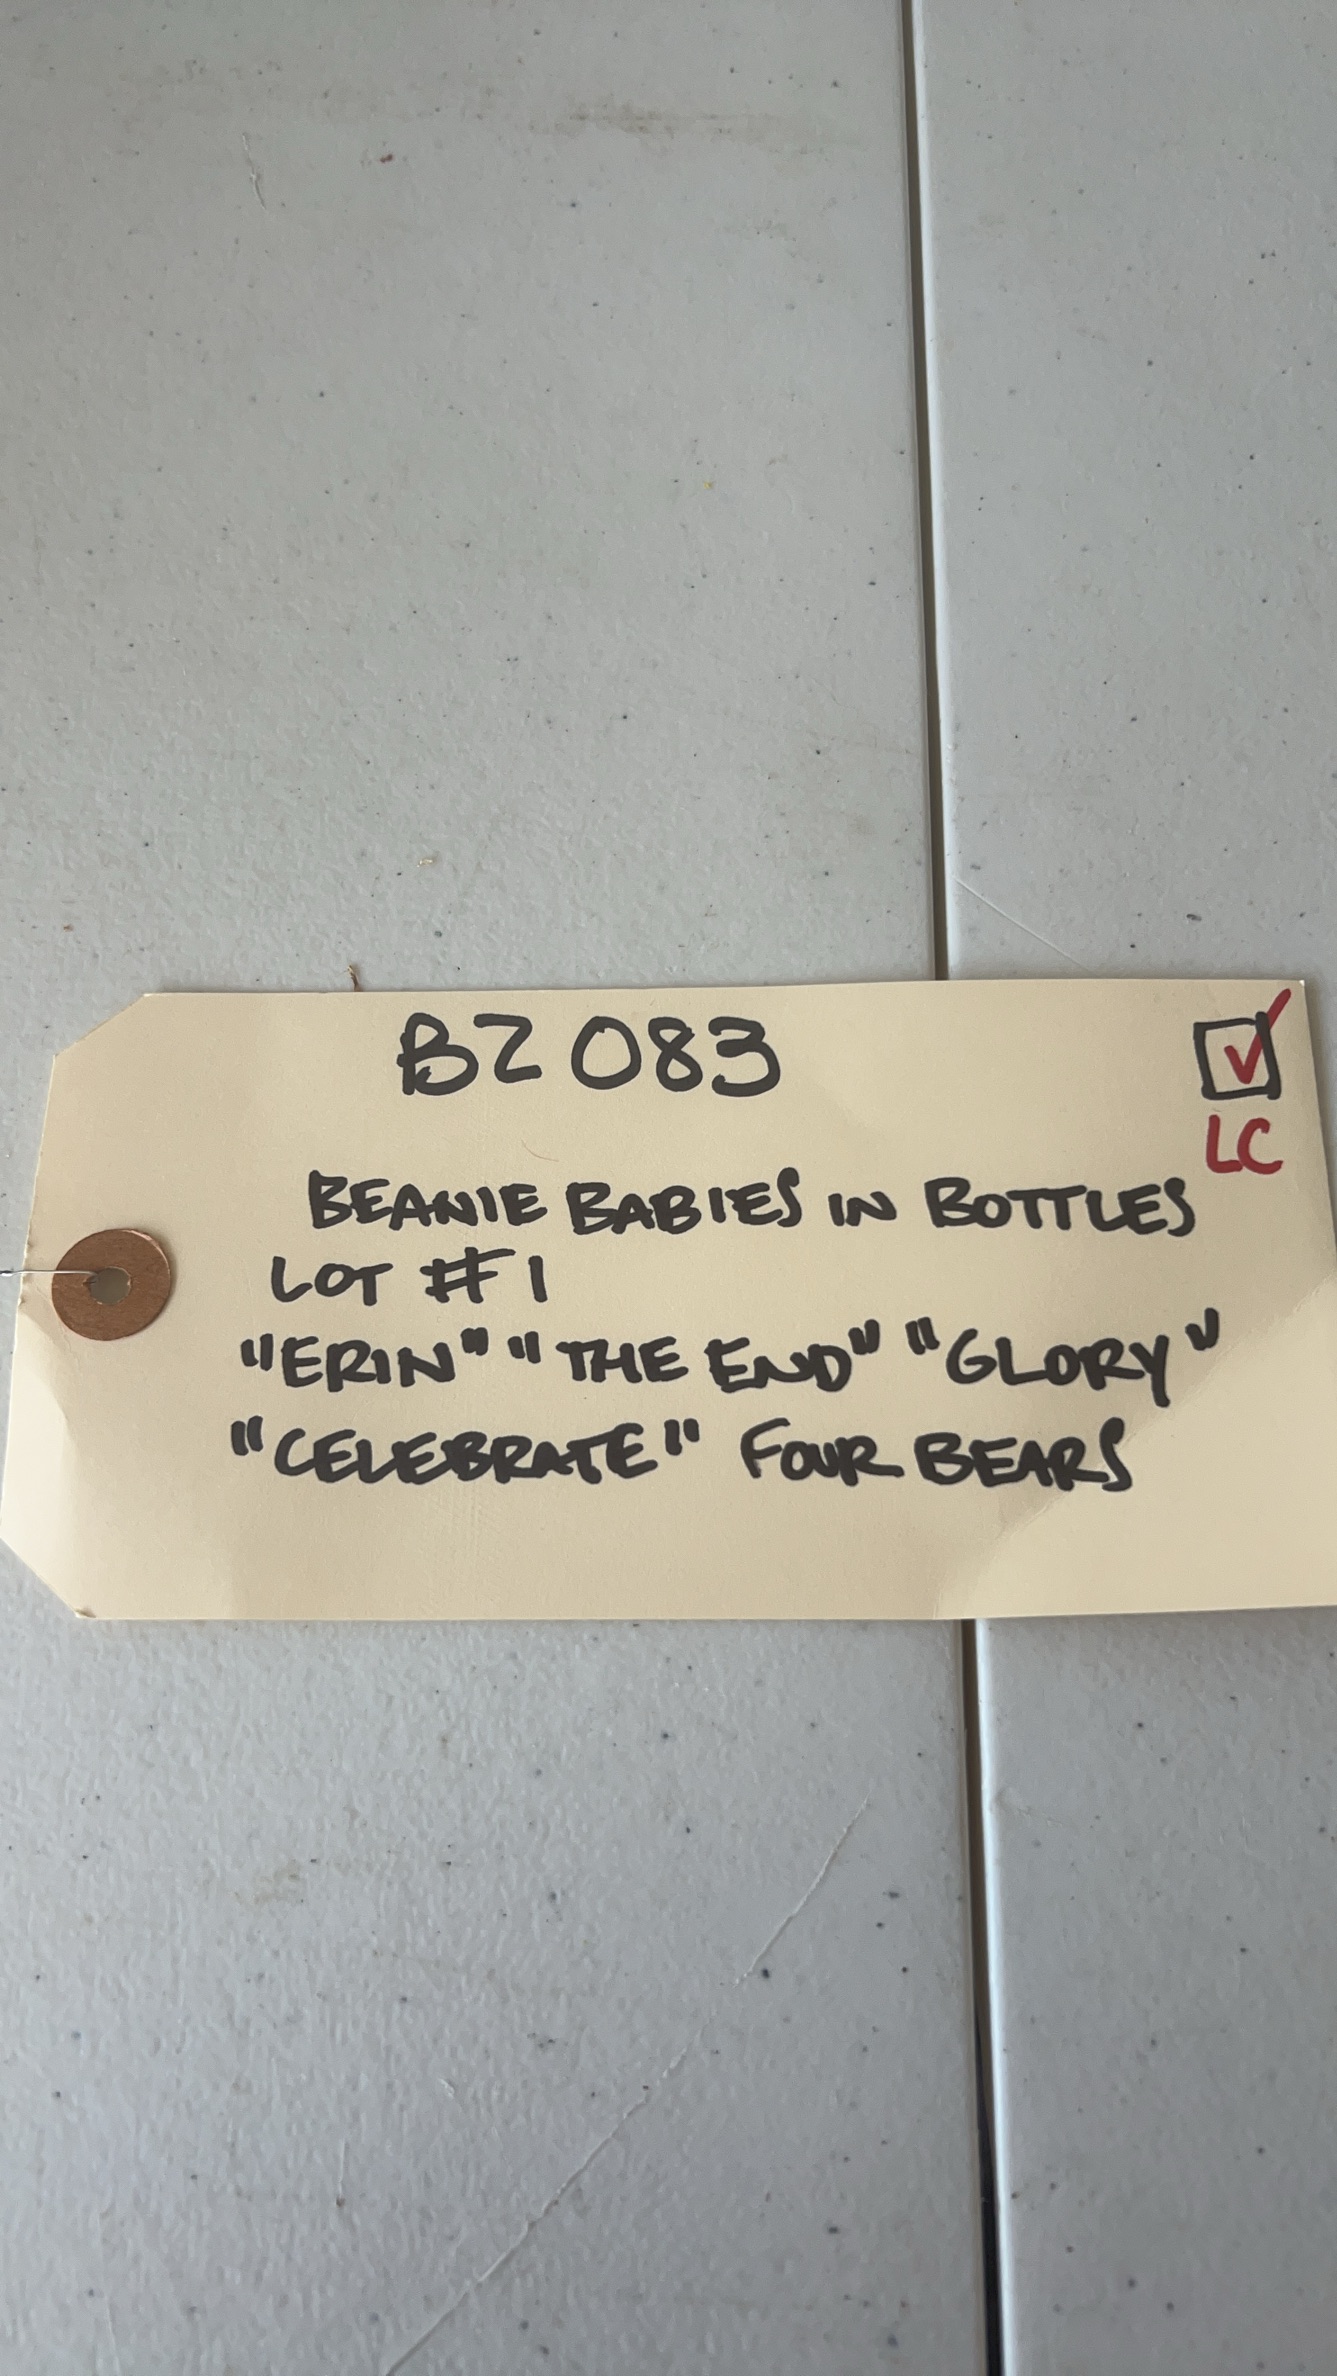 BZ 083
LC
BEANIE BABIES IN BOTTLES
LOT #1
"ERIN" "THE END" "GLORY"
"CELEBRATE" FOUR BEARS